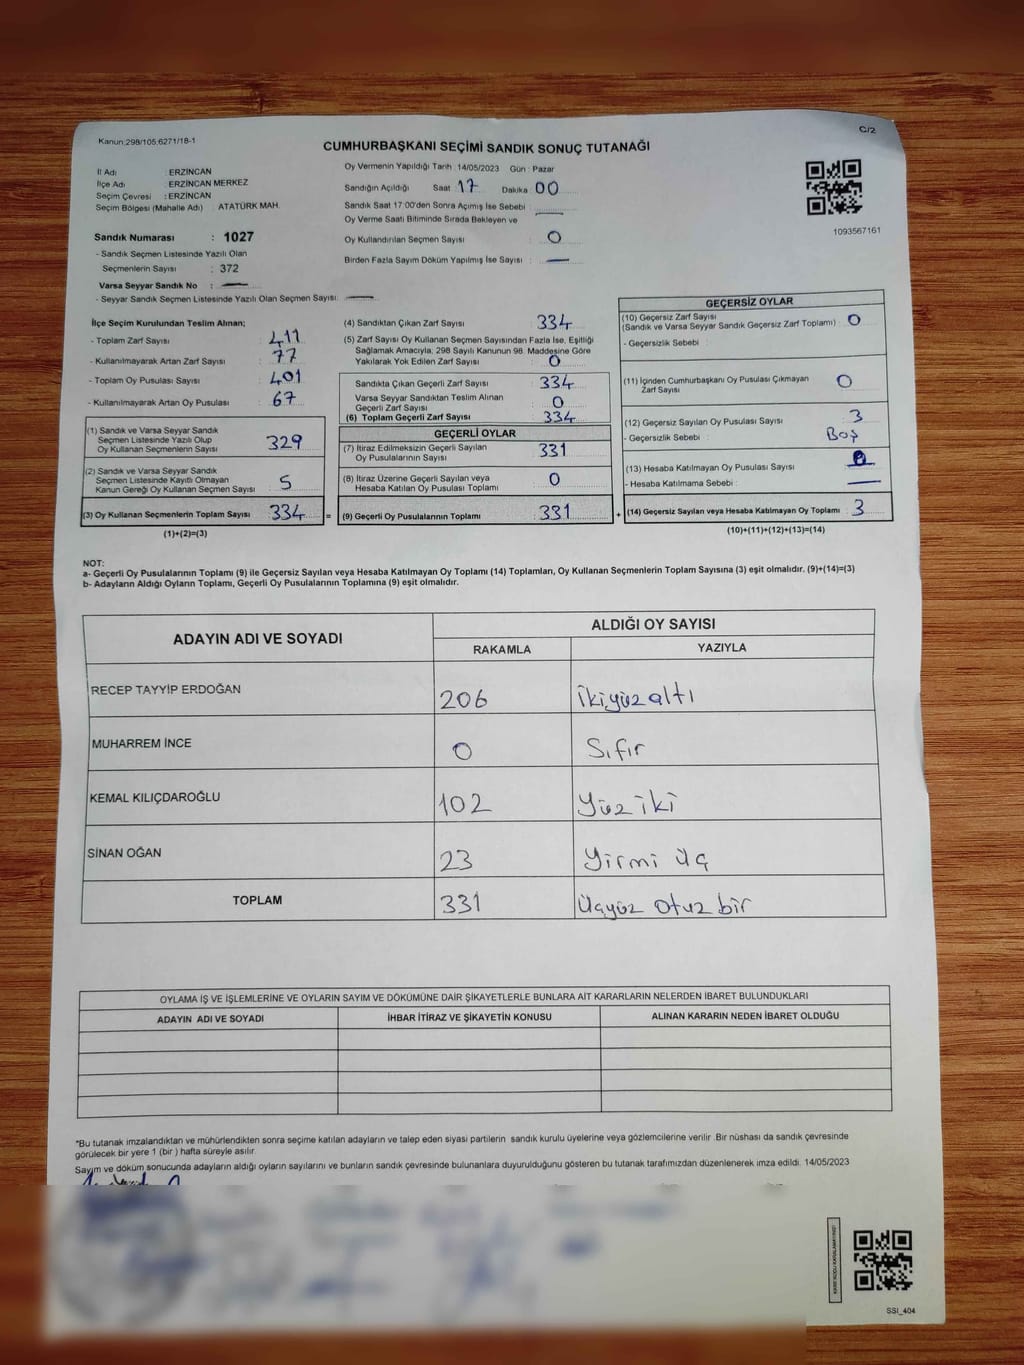 Kanun:298/105;6271/18-1
C/2
CUMHURBAŞKANI SEÇİMİ SANDIK SONUÇ TUTANAĞI
İl Adı : ERZİNCAN
İlçe Adı : ERZİNCAN MERKEZ
Seçim Çevresi : ERZİNCAN
Seçim Bölgesi (Mahalle Adı) : ATATÜRK MAH.
Sandık Numarası : 1027
- Sandık Seçmen Listesinde Yazılı Olan
Seçmenlerin Sayısı : 372
Varsa Seyyar Sandık No :
- Seyyar Sandık Seçmen Listesinde Yazılı Olan Seçmen Sayısı:
Oy Vermenin Yapıldığı Tarih :14/05/2023 Gün : Pazar
Sandığın Açıldığı Saat 17 Dakika 00
Sandık Saat 17:00'den Sonra Açımış İse Sebebi :
Oy Verme Saati Bitiminde Sırada Bekleyen ve
Oy Kullandırılan Seçmen Sayısı : 0
Birden Fazla Sayım Döküm Yapılmış İse Sayısı :
1093567161
İlçe Seçim Kurulundan Teslim Alınan;
- Toplam Zarf Sayısı : 411
- Kullanılmayarak Artan Zarf Sayısı : 77
- Toplam Oy Pusulası Sayısı : 401
- Kullanılmayarak Artan Oy Pusulası : 67
(1) Sandık ve Varsa Seyyar Sandık
Seçmen Listesinde Yazılı Olup
Oy Kullanan Seçmenlerin Sayısı 329
(2) Sandık ve Varsa Seyyar Sandık
Seçmen Listesinde Kayıtlı Olmayan
Kanun Gereği Oy Kullanan Seçmen Sayısı : 5
(3) Oy Kullanan Seçmenlerin Toplam Sayısı 334 =
(1)+(2)=(3)
(4) Sandıktan Çıkan Zarf Sayısı : 334
(5) Zarf Sayısı Oy Kullanan Seçmen Sayısından Fazla İse, Eşitliği
Sağlamak Amacıyla; 298 Sayılı Kanunun 98. Maddesine Göre
Yakılarak Yok Edilen Zarf Sayısı : 0
Sandıkta Çıkan Geçerli Zarf Sayısı : 334
Varsa Seyyar Sandıktan Teslim Alınan
Geçerli Zarf Sayısı : 0
(6) Toplam Geçerli Zarf Sayısı : 334
GEÇERLİ OYLAR
(7) İtiraz Edilmeksizin Geçerli Sayılan
Oy Pusulalarının Sayısı : 331
(8) İtiraz Üzerine Geçerli Sayılan veya
Hesaba Katılan Oy Pusulası Toplamı : 0
(9) Geçerli Oy Pusulalarının Toplamı : 331 +
GEÇERSİZ OYLAR
(10) Geçersiz Zarf Sayısı
(Sandık ve Varsa Seyyar Sandık Geçersiz Zarf Toplamı) : 0
- Geçersizlik Sebebi :
(11) İçinden Cumhurbaşkanı Oy Pusulası Çıkmayan
Zarf Sayısı : 0
(12) Geçersiz Sayılan Oy Pusulası Sayısı : 3
- Geçersizlik Sebebi : Boş
(13) Hesaba Katılmayan Oy Pusulası Sayısı : 0
- Hesaba Katılmama Sebebi :
(14) Geçersiz Sayılan veya Hesaba Katılmayan Oy Toplamı : 3
(10)+(11)+(12)+(13)=(14)
NOT:
a- Geçerli Oy Pusulalarının Toplamı (9) ile Geçersiz Sayılan veya Hesaba Katılmayan Oy Toplamı (14) Toplamları, Oy Kullanan Seçmenlerin Toplam Sayısına (3) eşit olmalıdır. (9)+(14)=(3)
b- Adayların Aldığı Oyların Toplamı, Geçerli Oy Pusulalarının Toplamına (9) eşit olmalıdır.
ADAYIN ADI VE SOYADI
ALDIĞI OY SAYISI
RAKAMLA YAZIYLA
RECEP TAYYİP ERDOĞAN 206 ikiyüzaltı
MUHARREM İNCE 0 Sıfır
KEMAL KILIÇDAROĞLU 102 Yüz iki
SİNAN OĞAN 23 Yirmi üç
TOPLAM 331 Üçyüz otuz bir
OYLAMA İŞ VE İŞLEMLERİNE VE OYLARIN SAYIM VE DÖKÜMÜNE DAİR ŞİKAYETLERLE BUNLARA AİT KARARLARIN NELERDEN İBARET BULUNDUKLARI
ADAYIN ADI VE SOYADI İHBAR İTİRAZ VE ŞİKAYETİN KONUSU ALINAN KARARIN NEDEN İBARET OLDUĞU
*Bu tutanak imzalandıktan ve mühürlendikten sonra seçime katılan adayların ve talep eden siyasi partilerin sandık kurulu üyelerine veya gözlemcilerine verilir .Bir nüshası da sandık çevresinde
görülecek bir yere 1 (bir ) hafta süreyle asılır.
Sayım ve döküm sonucunda adayların aldığı oyların sayılarını ve bunların sandık çevresinde bulunanlara duyurulduğunu gösteren bu tutanak tarafımızdan düzenlenerek imza edildi. 14/05/2023
SSI_404